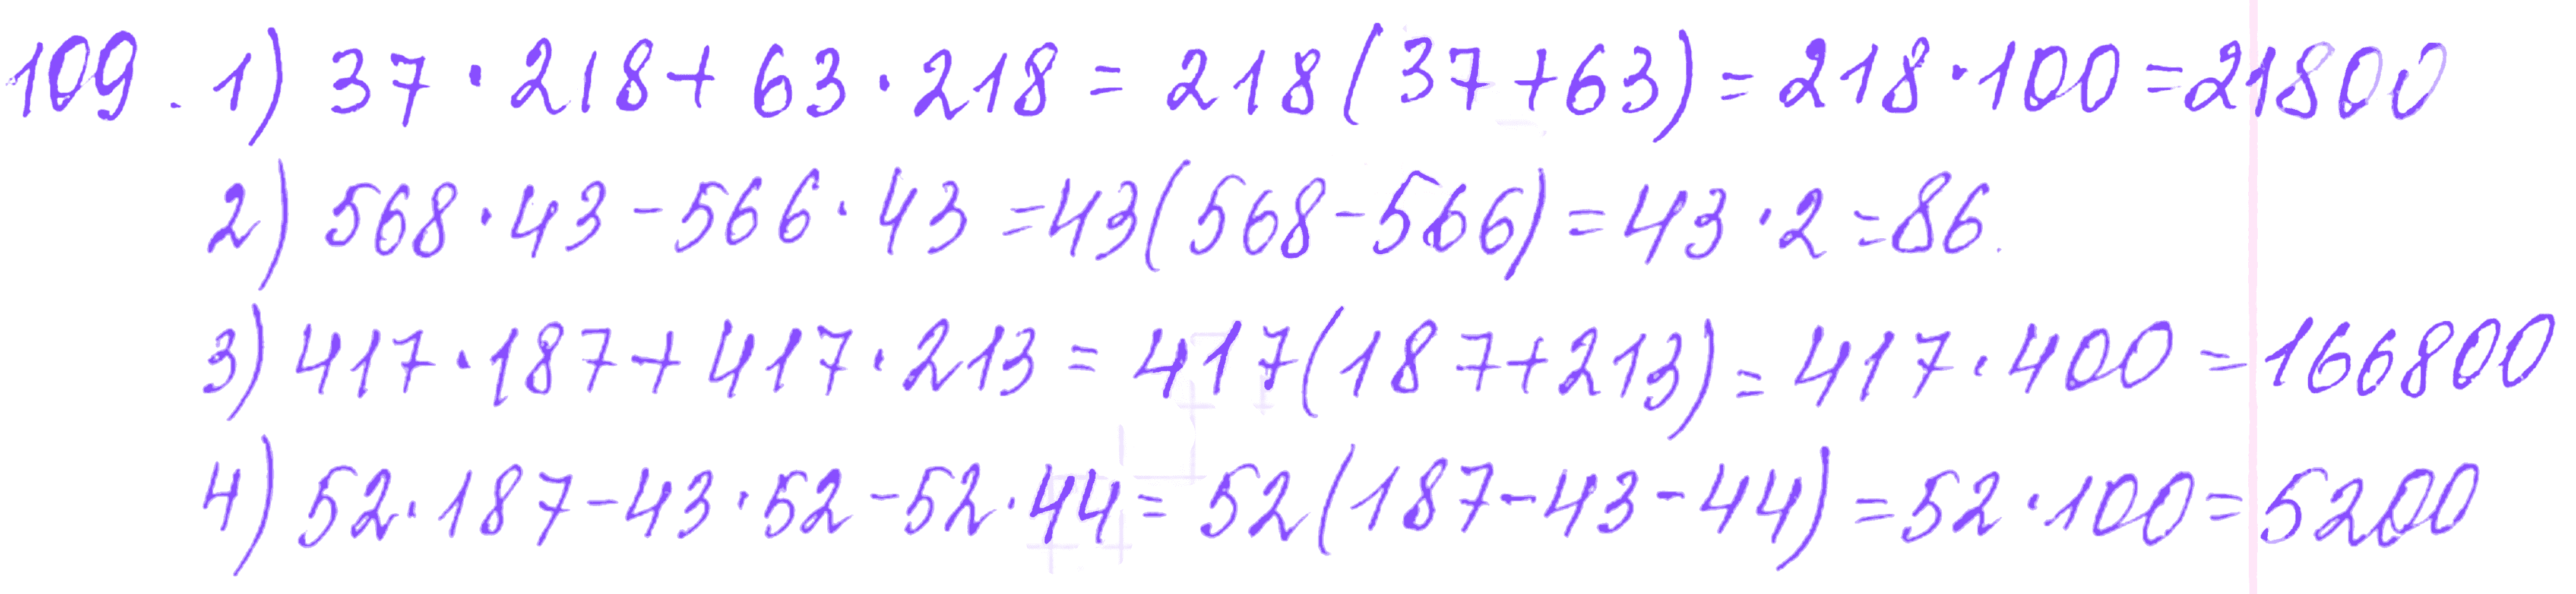 109. 1) 37 · 218 + 63 · 218 = 218 (37 + 63) = 218 · 100 = 21800
2) 568 · 43 - 566 · 43 = 43 (568 - 566) = 43 · 2 = 86.
3) 417 · 187 + 417 · 213 = 417 (187 + 213) = 417 · 400 = 166800
4) 52 · 187 - 43 · 52 - 52 · 44 = 52 (187 - 43 - 44) = 52 · 100 = 5200